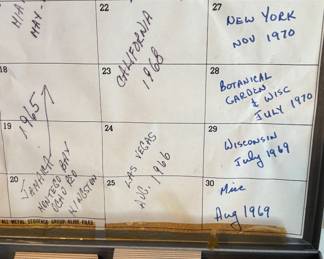 MIA
MAY -
22
CALIFORNIA
1968
27
NEW YORK
NOV 1970
18
1965
23
28
BOTANICAL
GARDEN
& WISC
JULY 1970
19
JAMAICA
MONTEGO BAY
OCHO RIO
KINGSTON
24
LAS VEGAS
AUG. 1966
29
WISCONSIN
July 1969
20
25
30
Misc
Aug 1969
ALL-METAL SEQUENCE GROUP SLIDE FILES